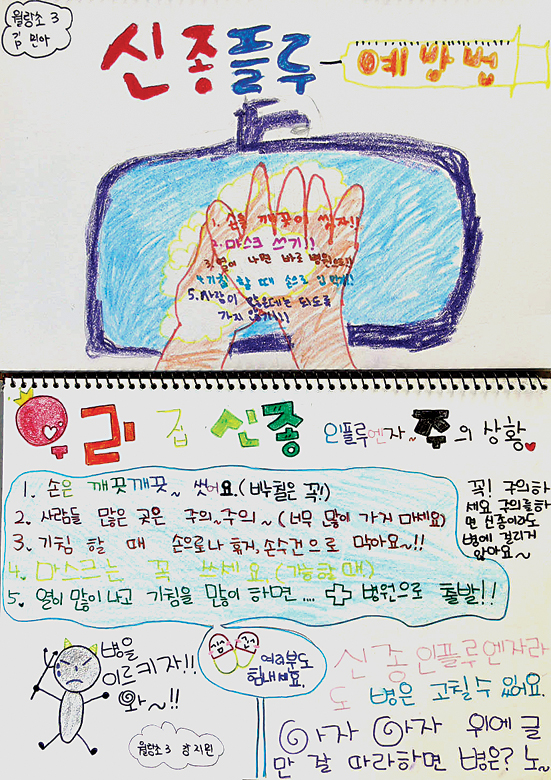 월랑초 3
김 민아
신종플루-예방법
1. 손을 깨끗이 씻자!!
2. 마스크 쓰기!!
3. 열이 나면 바로 병원으로!!
4. 기침 할 때 손으로 입 막기!!
5. 사람이 많은데는 되도록
가지 않기!!!
우리 집 신종 인플루엔자~ 주의 상황
1. 손은 깨끗깨끗~ 씻어요.(비누칠은 꼭!)
2. 사람들 많은 곳은 주의~주의~ (너무 많이 가지 마세요)
3. 기침 할 때 손으로나 휴지, 손수건으로 막아요~!!
4. 마스크는 꼭 쓰세요 (기침할 때)
5. 열이 많이 나고 기침을 많이 하면.... 병원으로 출발!!
꼭! 주의하
세요 주의를하
면 신종이라도
병에 걸리지
않아요~
병을
이르키자!!
와~!!
여러분도
힘내세요.
월랑초3 지원
신종인플루엔자라
도 병은 고칠수 있어요.
아자 아자 위에 글
만 잘 따라하면 병은? 노~